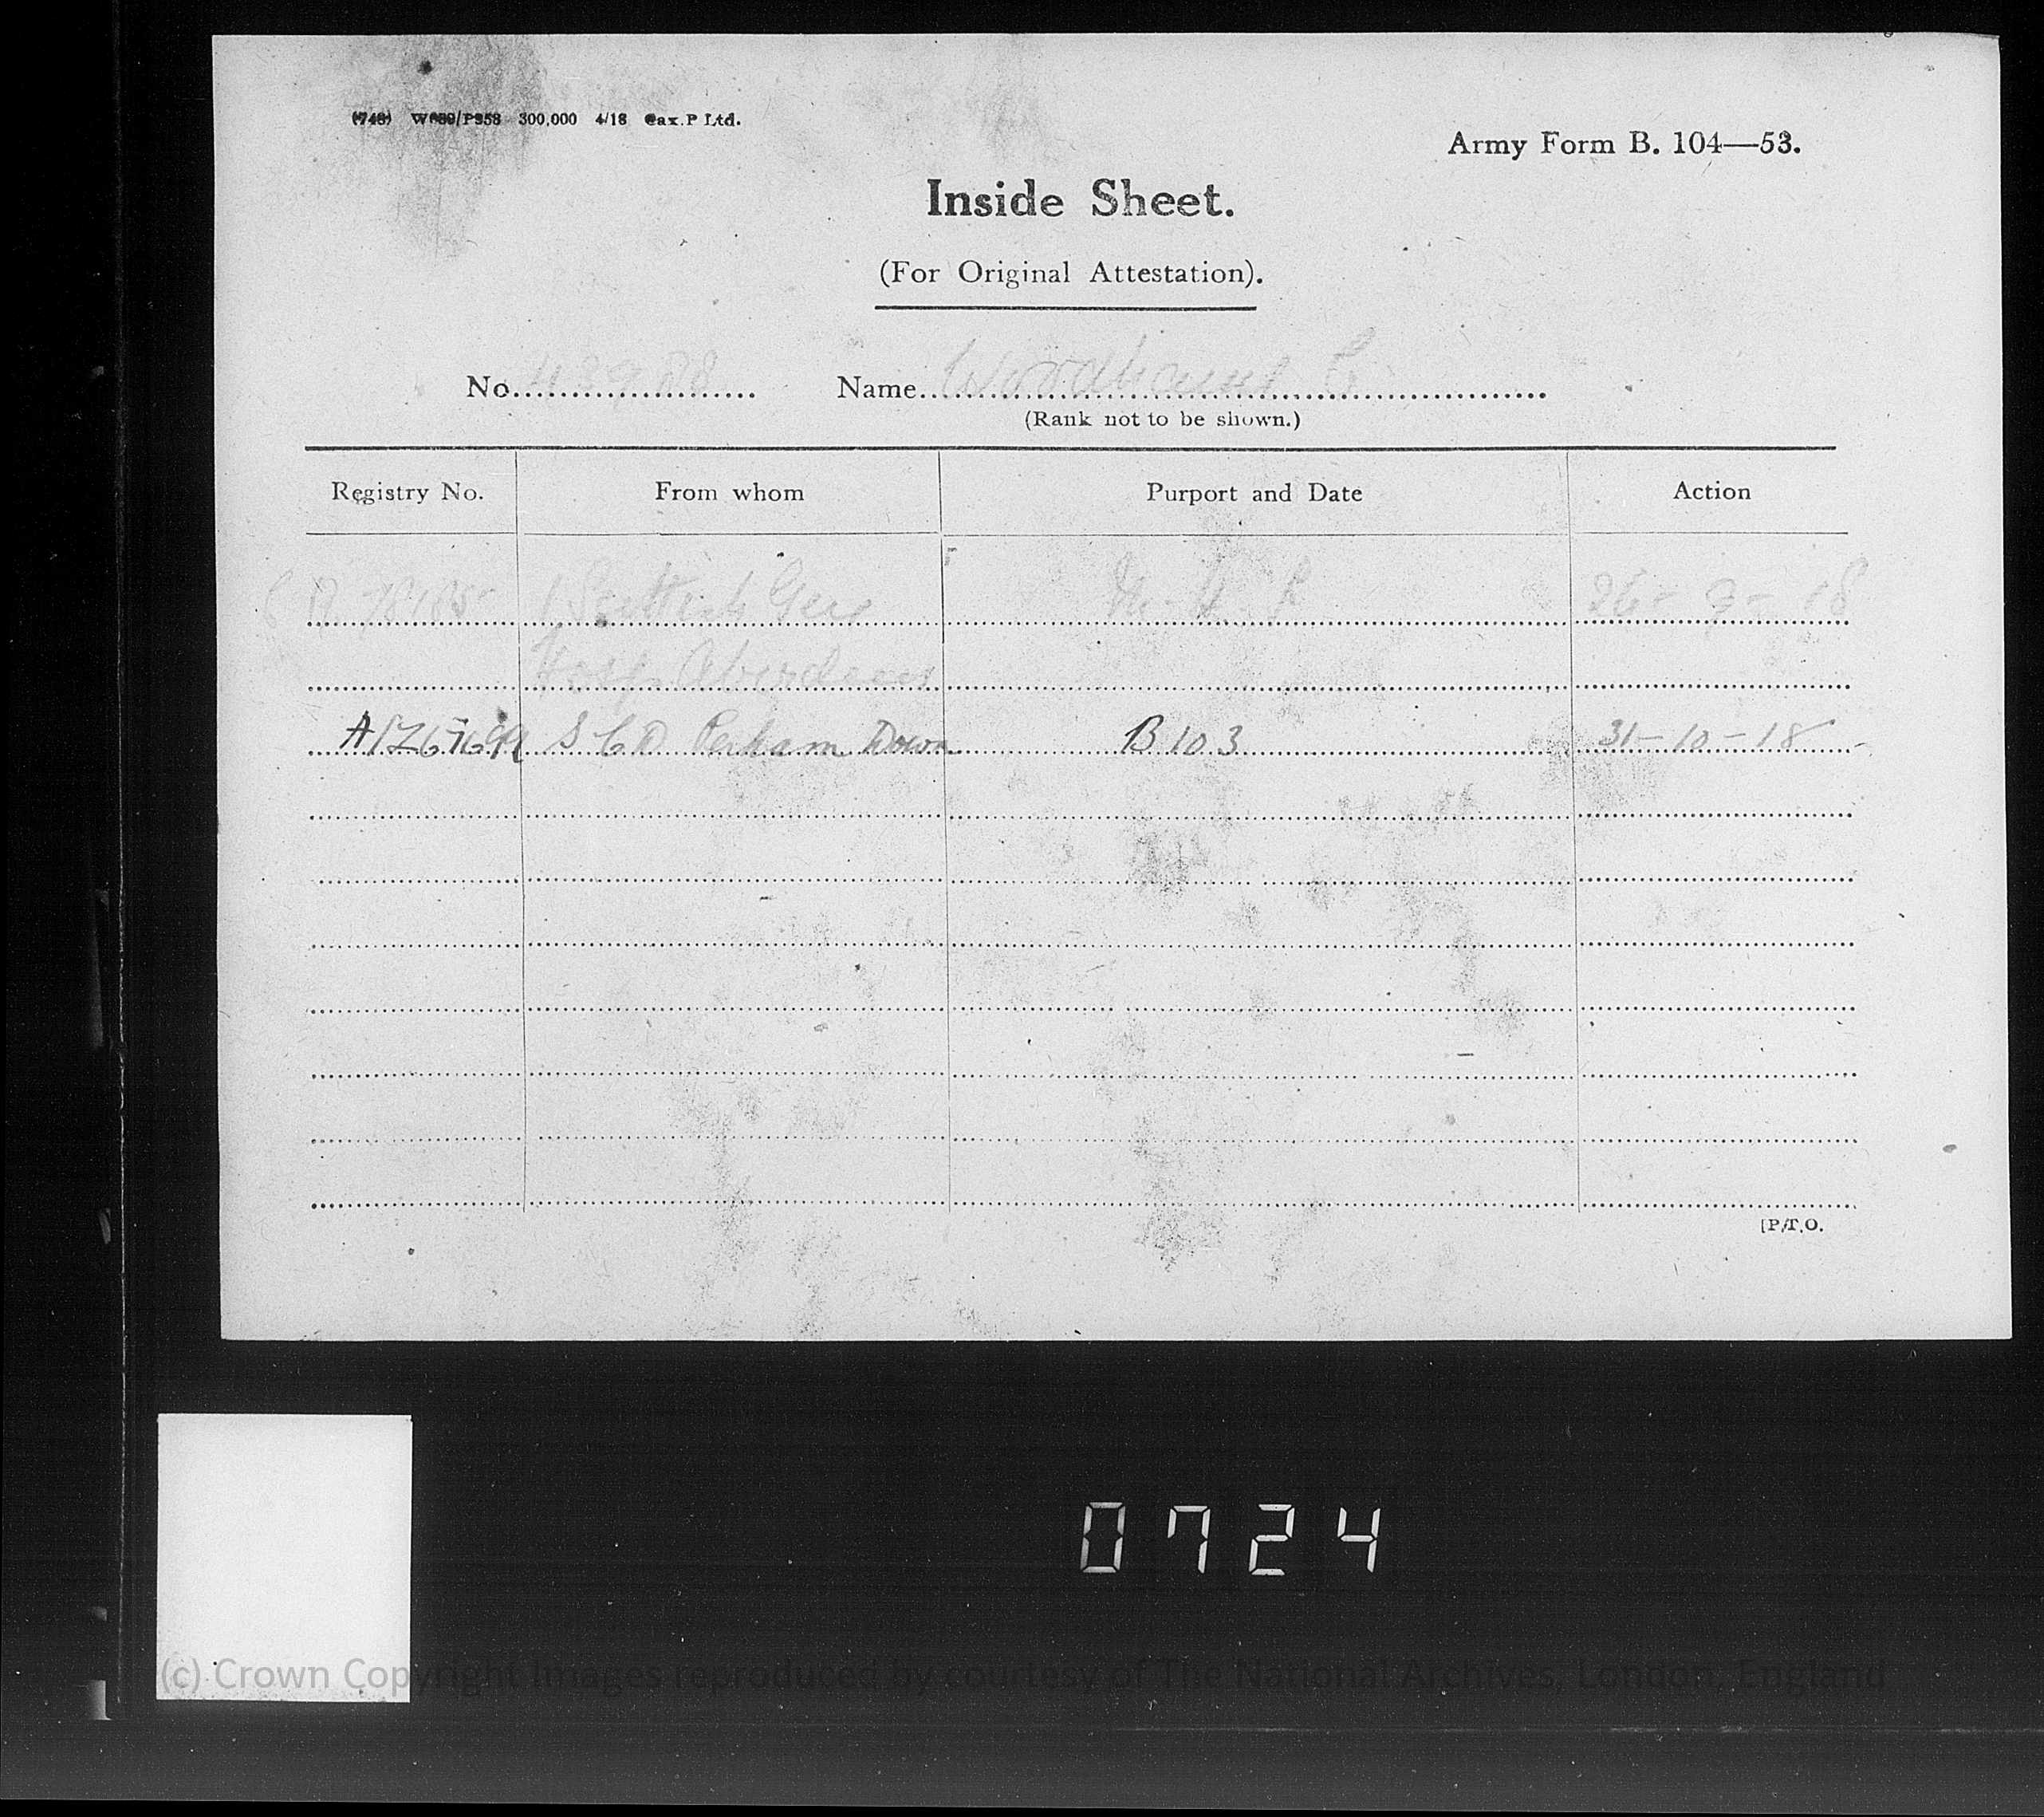 300,000 4/18 P Ltd.
Army Form B. 104—53.
Inside Sheet.
(For Original Attestation).
No. Name
(Rank not to be shown.)
Registry No. From whom Purport and Date Action
1 Scottish Gen 26-9-18
Hosp Aberdeen
S C D Perham Down B 103 31-10-18
[P.T.O.
0724
(c) Crown Copyright Images reproduced by courtesy of The National Archives, London, England